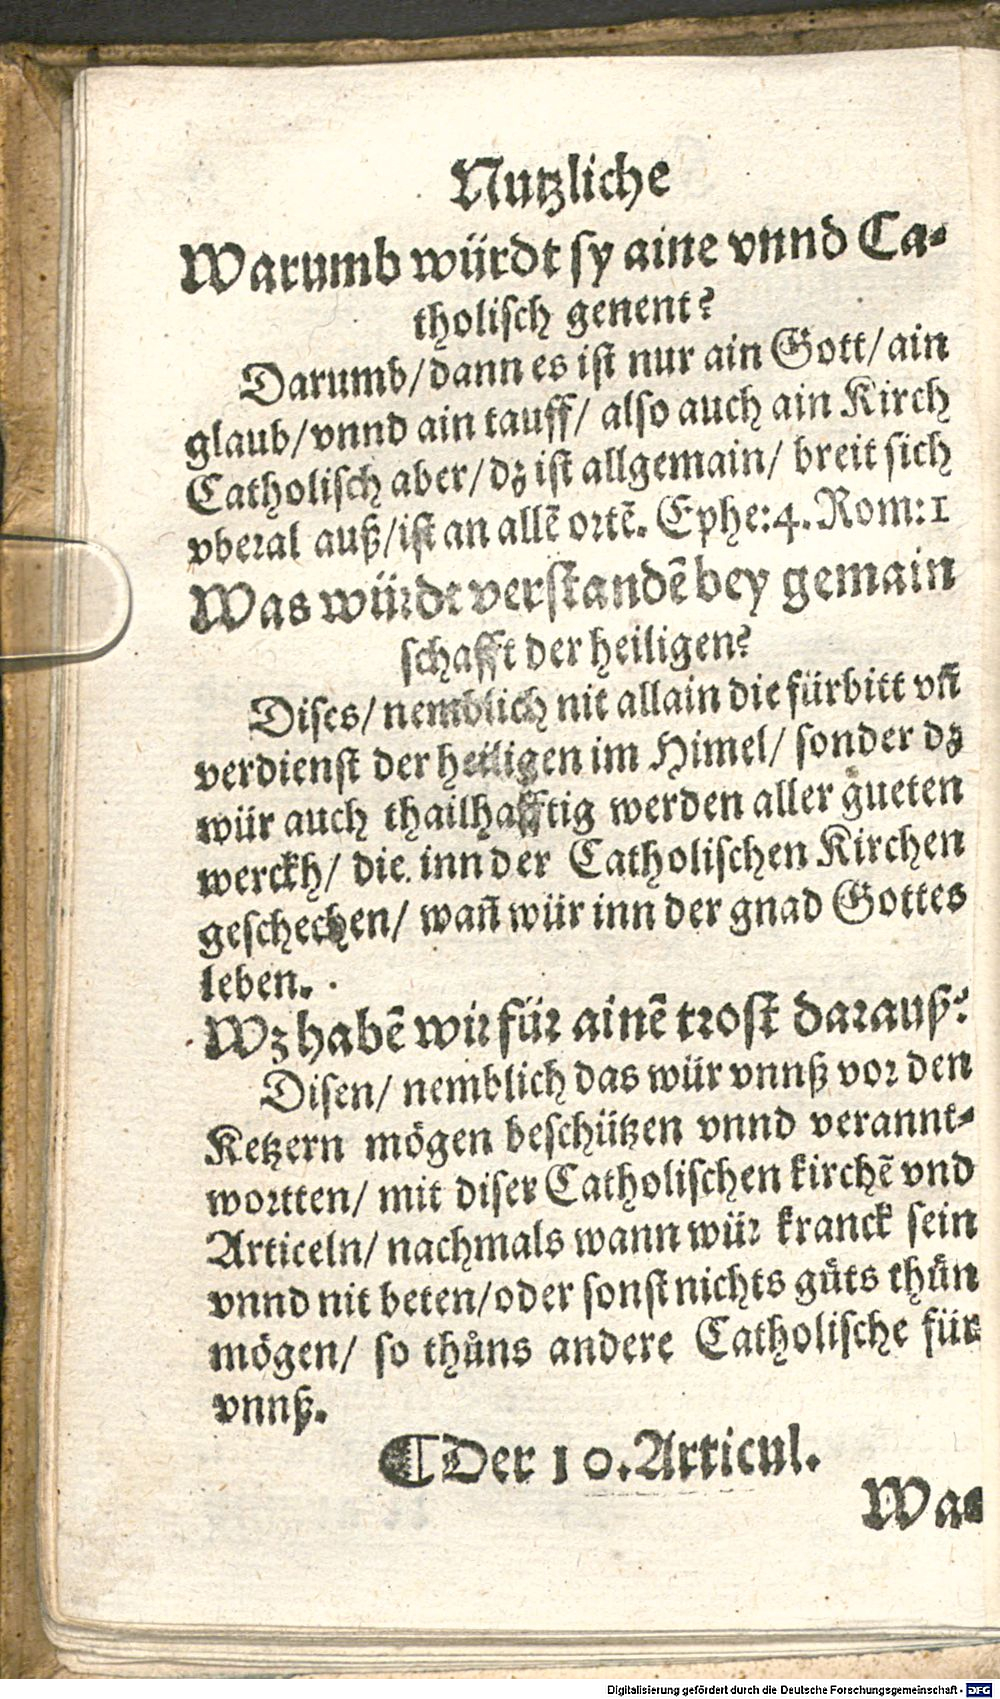 Nutzliche
Warumb würdt sy aine vnnd Ca-
tholisch genent?
Darumb/dann es ist nur ain Gott/ain
glaub/vnnd ain tauff/ also auch ain Kirch
Catholisch aber/dz ist allgemain/ breit sich
vberal auß/ist an allẽ ortẽ. Ephe:4. Rom:1
Was würdt verstandẽ bey gemain
schafft der heiligen?
Dises/ nemblich nit allain die fürbitt vñ
verdienst der heiligen im Himel/ sonder dz
wür auch thailhafftig werden aller gueten
werckh/ die. inn der Catholischen Kirchen
geschechen/ wañ wür inn der gnad Gottes
leben.
Wz habẽ wir für ainẽ trost darauß?
Disen/ nemblich das wür vnnß vor den
Ketzern mögen beschützen vnnd verannt-
wortten/ mit diser Catholischen kirchẽ vnd
Articeln/ nachmals wann wür kranck sein
vnnd nit beten/oder sonst nichts gůts thůn
mögen/ so thůns andere Catholische für
vnnß.
¶ Der 10. Articul.
Wa-
Digitalisierung gefördert durch die Deutsche Forschungsgemeinschaft - DFG